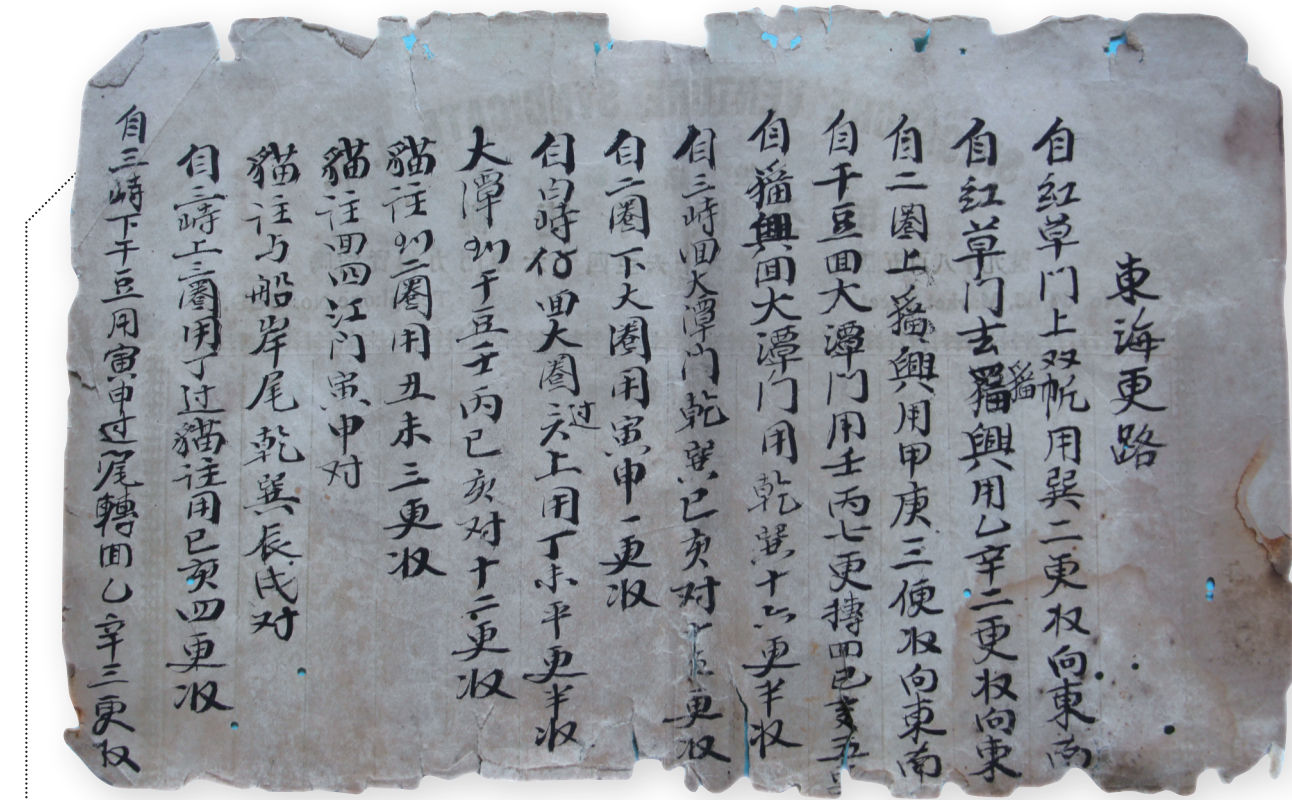 東海更路
自红草门上双帆用巽二更收向東南
自红草门去猫興用乙辛二更收向東
自二圈上猫興用甲庚三便收向東南
自干豆回大潭门用壬丙七更搏回巳亥五
自猫興回大潭门用乾巽十六更半收
自三峙回大潭门乾巽巳亥对十五更收
自二圈下大圈用寅申一更收
自白峙仔回大圈过上用丁未平更半收
大潭刘干豆壬丙巳亥对十二更收
猫注刘二圈用丑未三更收
猫注回四江门寅申对
猫注与船岸尾乾巽辰戌对
自三峙上三圈用丁过猫注用巳亥四更收
自三峙下干豆用寅申过尾轉回乙辛三更收